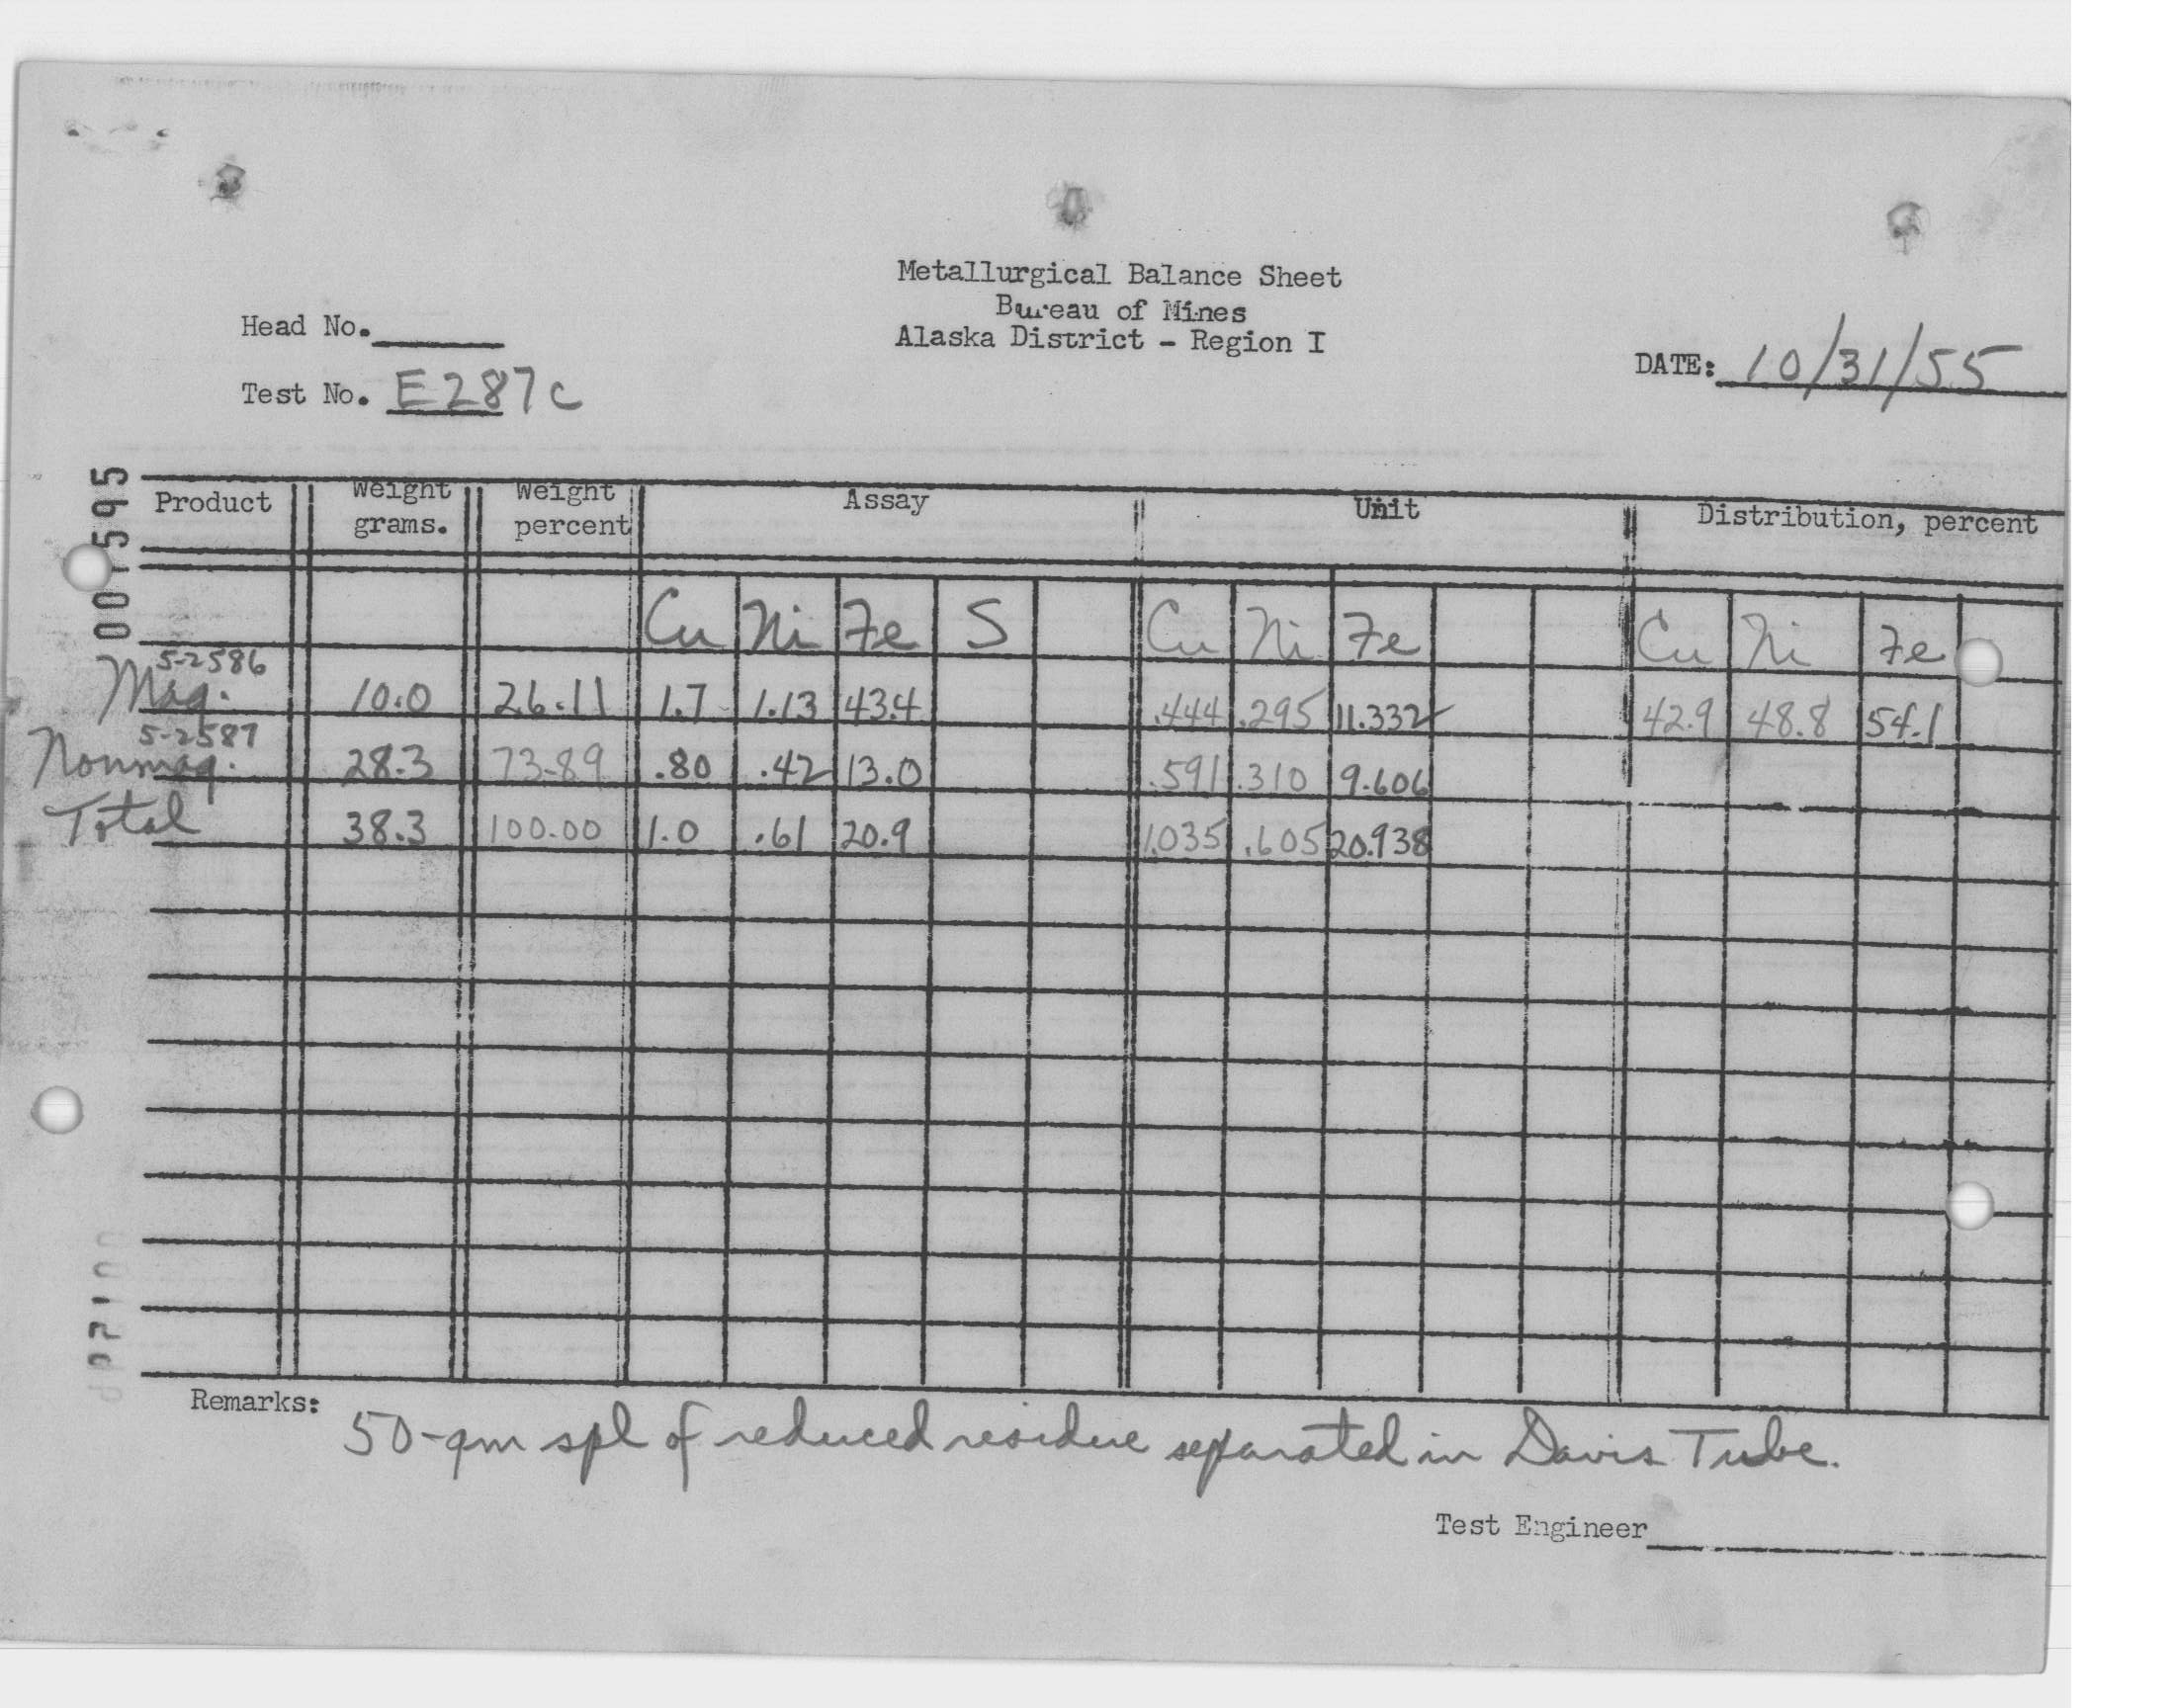 Metallurgical Balance Sheet
Bureau of Mines
Alaska District - Region I
Head No.
Test No. E287c
DATE: 10/31/55
Product Weight grams. Weight percent Assay Unit Distribution, percent
Cu Ni Fe S Cu Ni Fe Cu Ni Fe
5-2586
Mag. 10.0 26.11 1.7 1.13 43.4 .444 .295 11.332 42.9 48.8 54.1
5-2587
Nonmag. 28.3 73.89 .80 .42 13.0 .591 .310 9.606
Total 38.3 100.00 1.0 .61 20.9 1.035 .605 20.938
Remarks: 50-gm spl of reduced residue separated in Davis Tube.
Test Engineer